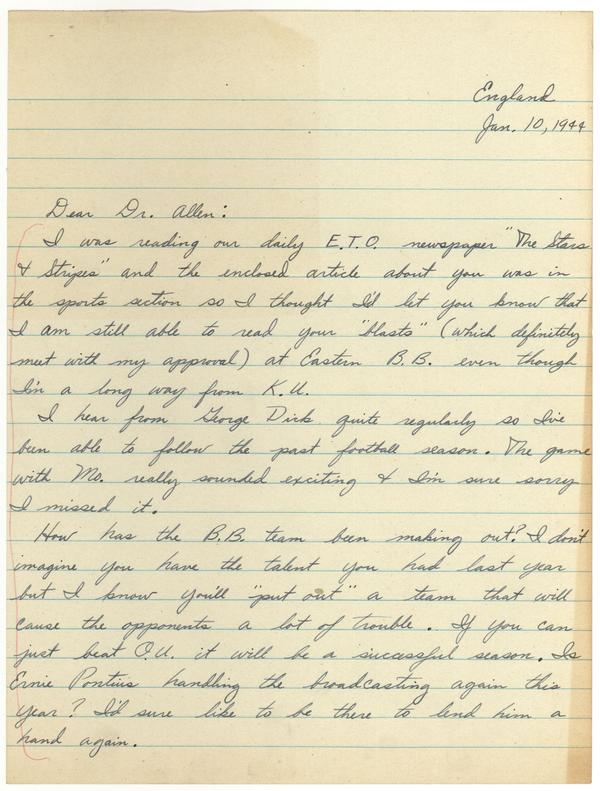 England
Jan. 10, 1944
Dear Dr. Allen:
I was reading our daily E.T.O. newspaper "The Stars
& Stripes" and the enclosed article about you was in
the sports section so I thought I'd let you know that
I am still able to read your "blasts" (which definitely
meet with my approval) at Eastern B.B. even though
I'm a long way from K.U.
I hear from George Dick quite regularly so I've
been able to follow the past football season. The game
with Mo. really sounded exciting & I'm sure sorry
I missed it.
How has the B.B. team been making out? I don't
imagine you have the talent you had last year
but I know you'll "put out" a team that will
cause the opponents a lot of trouble. If you can
just beat O.U. it will be a successful season. Is
Ernie Pontius handling the broadcasting again this
year? I'd sure like to be there to lend him a
hand again.